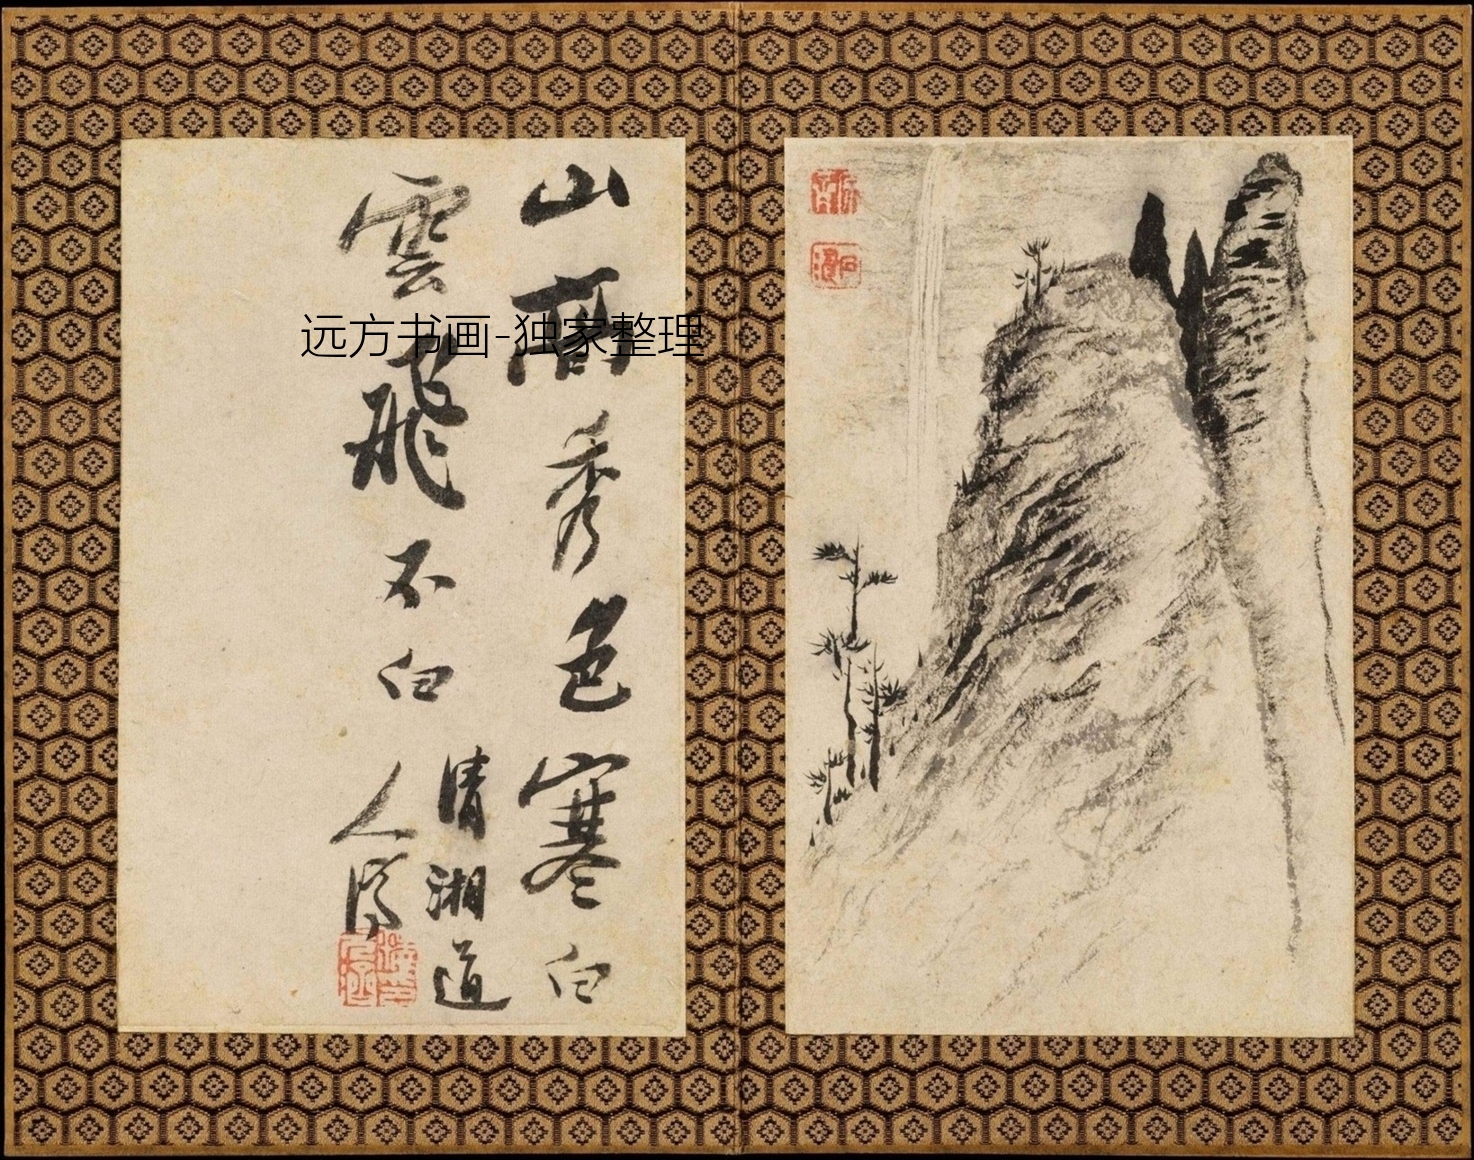 山高秀色寒白
雲飛不白
清湘道
人濟
远方书画-独家整理
石濤